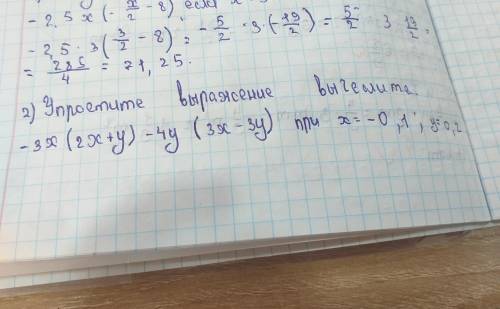 - 2,5 x (- x/2 - 8) если x
- 2,5 · 3 (3/2 - 8) = - 5/2 · 3 · (- 19/2) = 5/2 · 3 · 19/2 =
= 285/4 = 71,25.
2) Упростите выражение вычеслите.
-3x (2x+y) -4y (3x-3y) при x=-0,1, y=0,2